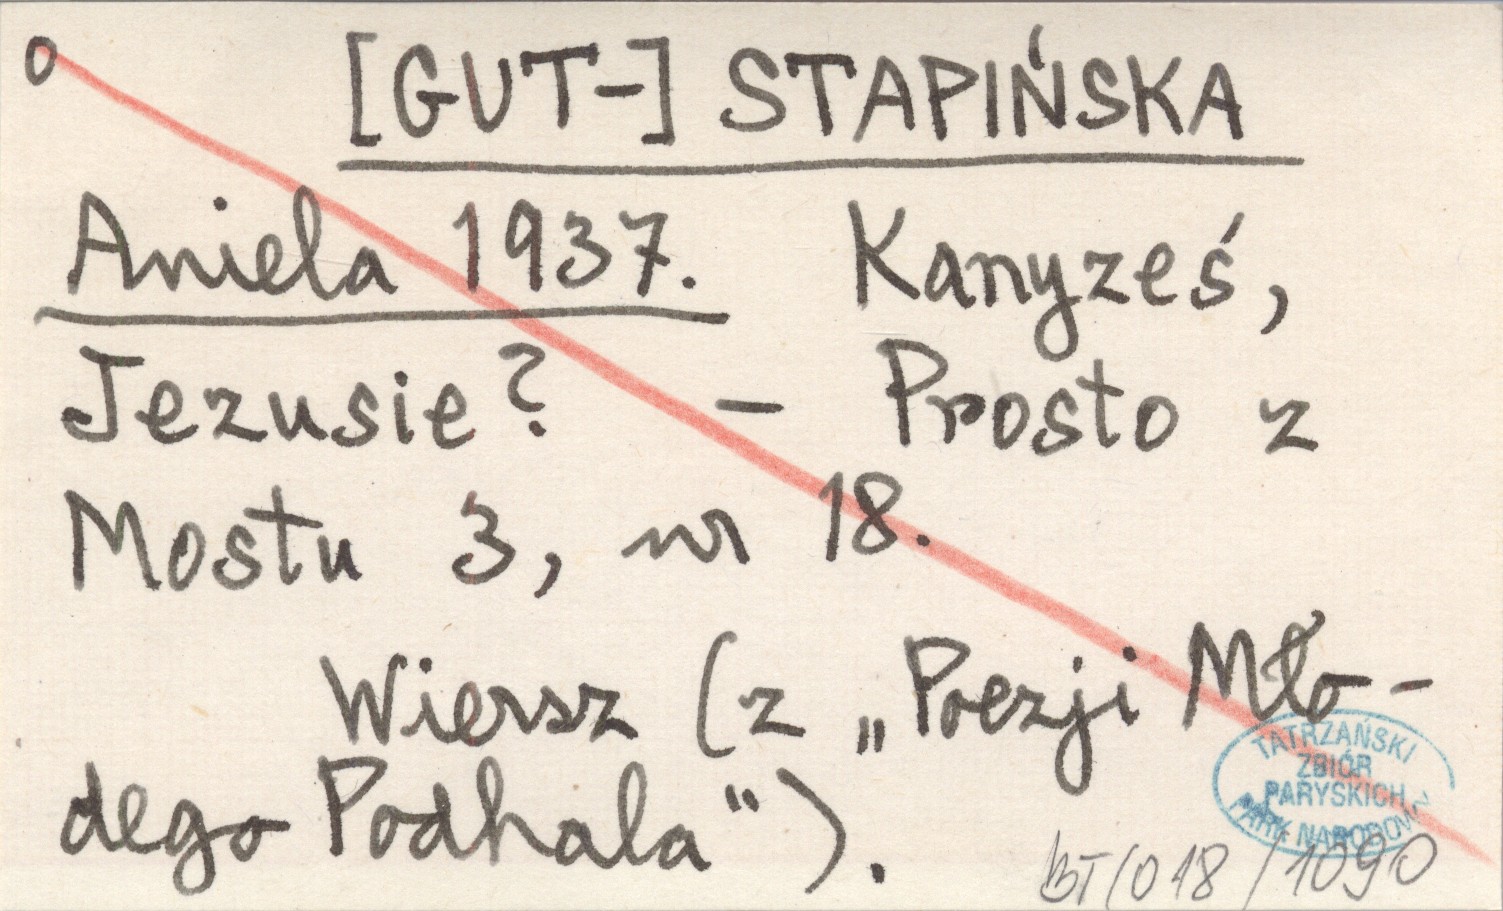 o
[GUT-] STAPIŃSKA
Aniela 1937. Kanyześ,
Jezusie? – Prosto z
Mostu 3, nr 18.
Wiersz (z „Poezji Mło-
dego Podhala").
TATRZAŃSKI
ZBIÓR
PARYSKICH
PARK NARODOWY
BT/018/1090